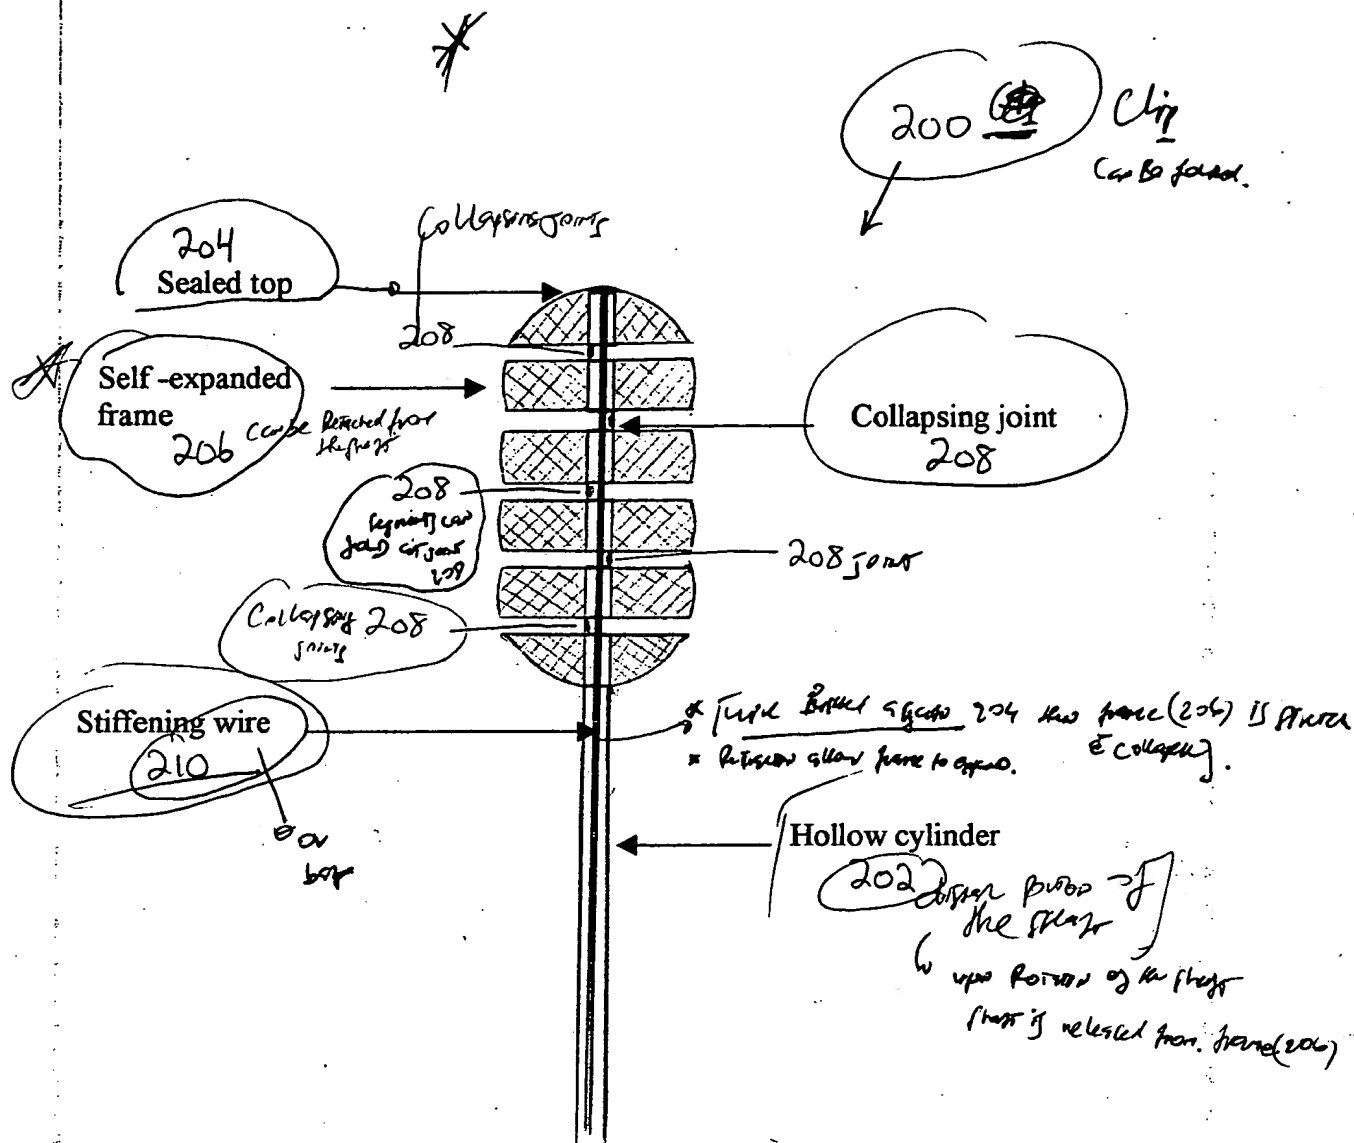 200
Clip
Can Be folded.
Collapsing Joints
204
Sealed top
208
Self -expanded
frame
206 can be Detached from
the shaft
Collapsing joint
208
208
segments can
fold at joint
208
208 joint
Collapsing 208
joints
Stiffening wire
210
or
* against 204 then frame (206) is
& collapsed].
* allow frame to expand.
Hollow cylinder
202
portion of
the shaft
upon Rotation of the shaft
shaft is released from frame (206)